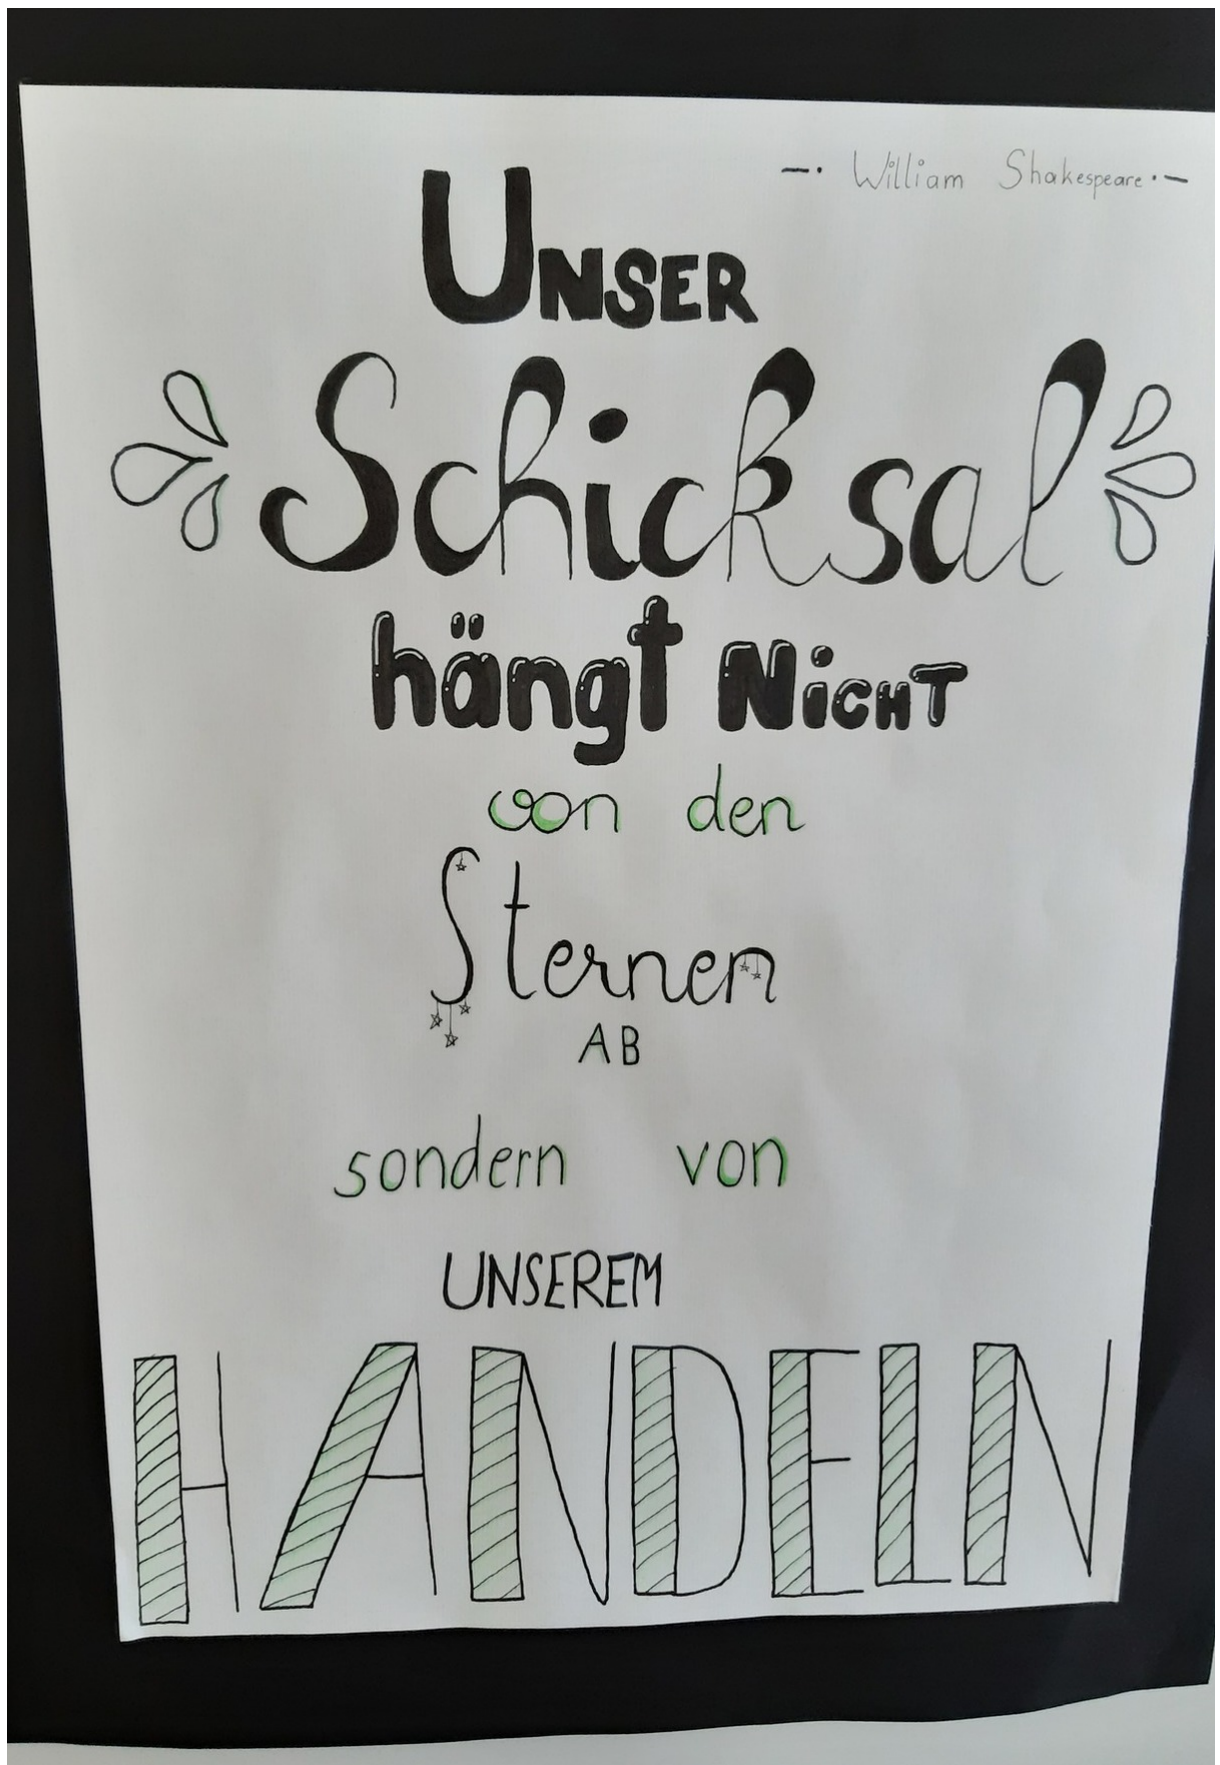 -. William Shakespeare.-
UNSER
Schicksal
hängt NiCHT
von den
Sternen
AB
sondern von
UNSEREM
HANDELN